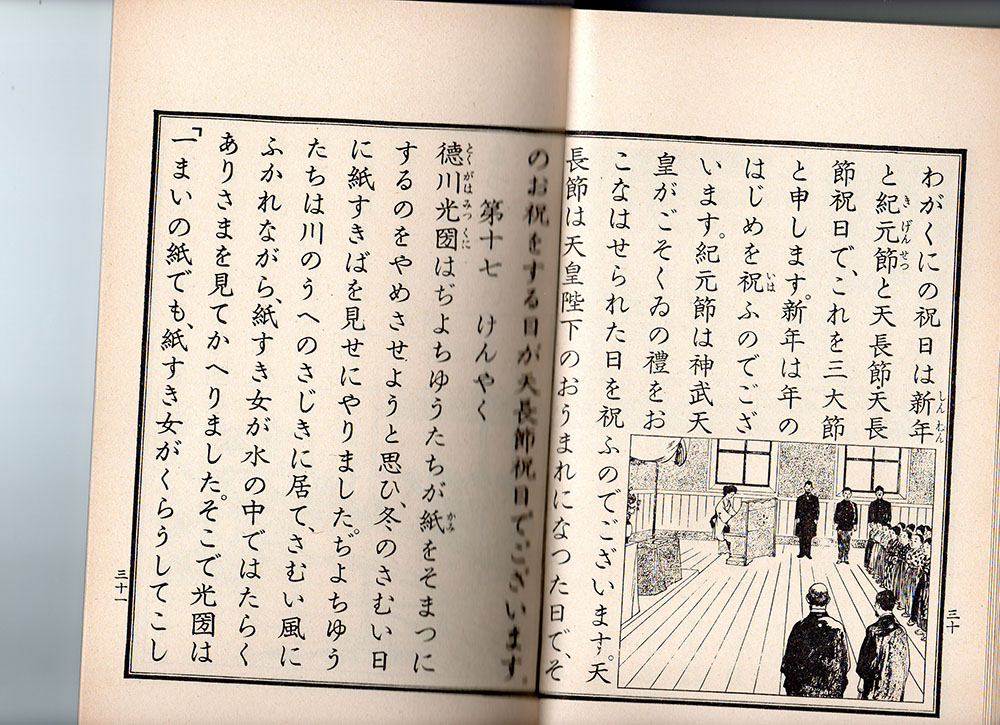 わがくにの祝日は新年
しんねん
と紀元節と天長節・天長
きげんせつ
節祝日で、これを三大節
と申します。新年は年の
はじめを祝ふのでござ
いは
います。紀元節は神武天
皇がごそくゐの禮をお
こなはせられた日を祝ふのでございます。天
長節は天皇陛下のおうまれになつた日で、そ
三十
のお祝をする日が天長節祝日でございます。
第十七　けんやく
德川光圀はぢよちゆうたちが紙をそまつに
とくがはみつくに
かみ
するのをやめさせようと思ひ、冬のさむい日
に紙すきばを見せにやりました。ぢよちゆう
たちは川のうへのさじきに居て、さむい風に
ふかれながら、紙すき女が水の中ではたらく
ありさまを見てかへりました。そこで光圀は
「一まいの紙でも、紙すき女がくらうしてこし
三十一